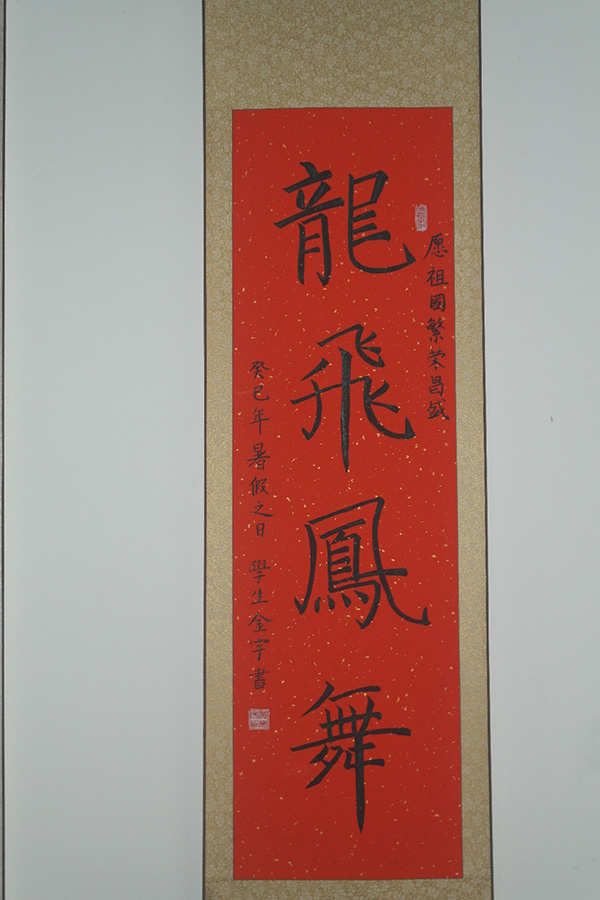 愿祖國繁荣昌盛
龍飛鳳舞
癸巳年暑假之日 學生金宇書